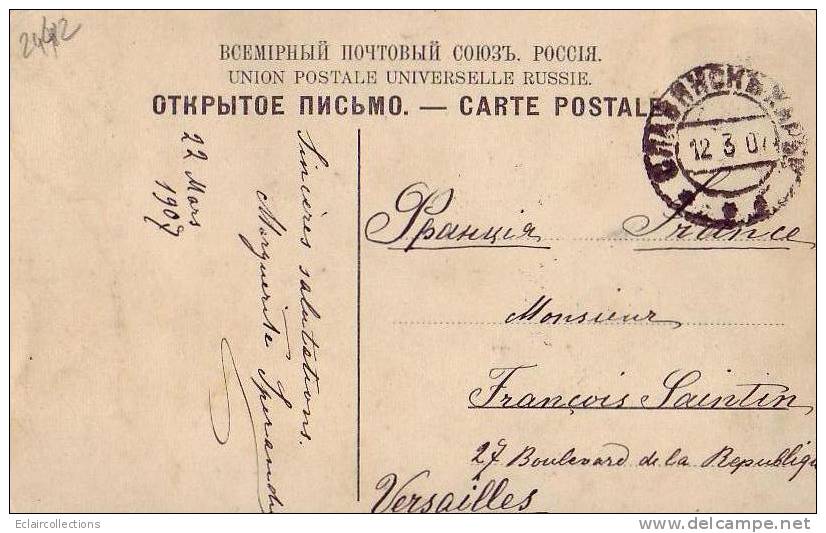 2442
ВСЕМІРНЫЙ ПОЧТОВЫЙ СОЮЗЪ. РОССІЯ.
UNION POSTALE UNIVERSELLE RUSSIE.
ОТКРЫТОЕ ПИСЬМО. — CARTE POSTALE
СЛАВЯНСКЪ ХАРЬК
12 3 07
22 Mars
1907
Sincères salutations.
Marguerite
Франція France
Monsieur
François Saintin
27 Boulevard de la Republiqu
Versailles
Eclaircollections
delcampe.net